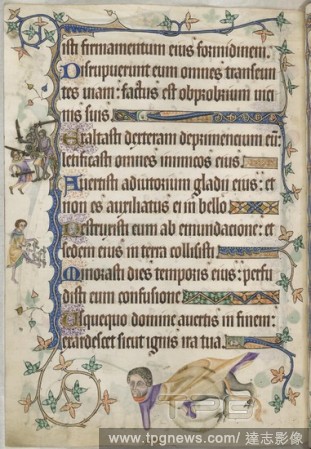 isti firmamentum eius formidinem.
Diripuerunt eum omnes transeun
tes uiam: factus est obprobrium uici
nis suis.
Exaltasti dexteram deprimencium eū:
letificasti omnes inimicos eius.
Auertisti adiutorium gladii eius: et
non es auxiliatus ei in bello
Destruxisti eum ab emundacione: et
sedem eius in terra collisisti
Minorasti dies temporis eius: perfu
disti eum confusione
Usquequo domine auertis in finem:
exardescet sicut ignis ira tua.
TPG
www.tpgnews.com/ 達志影像